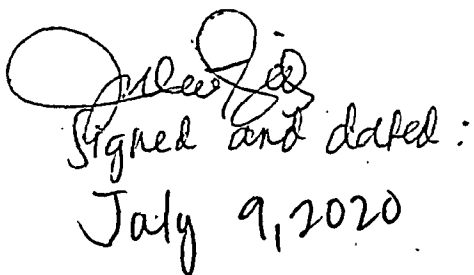 Signed and dated:
July 9, 2020